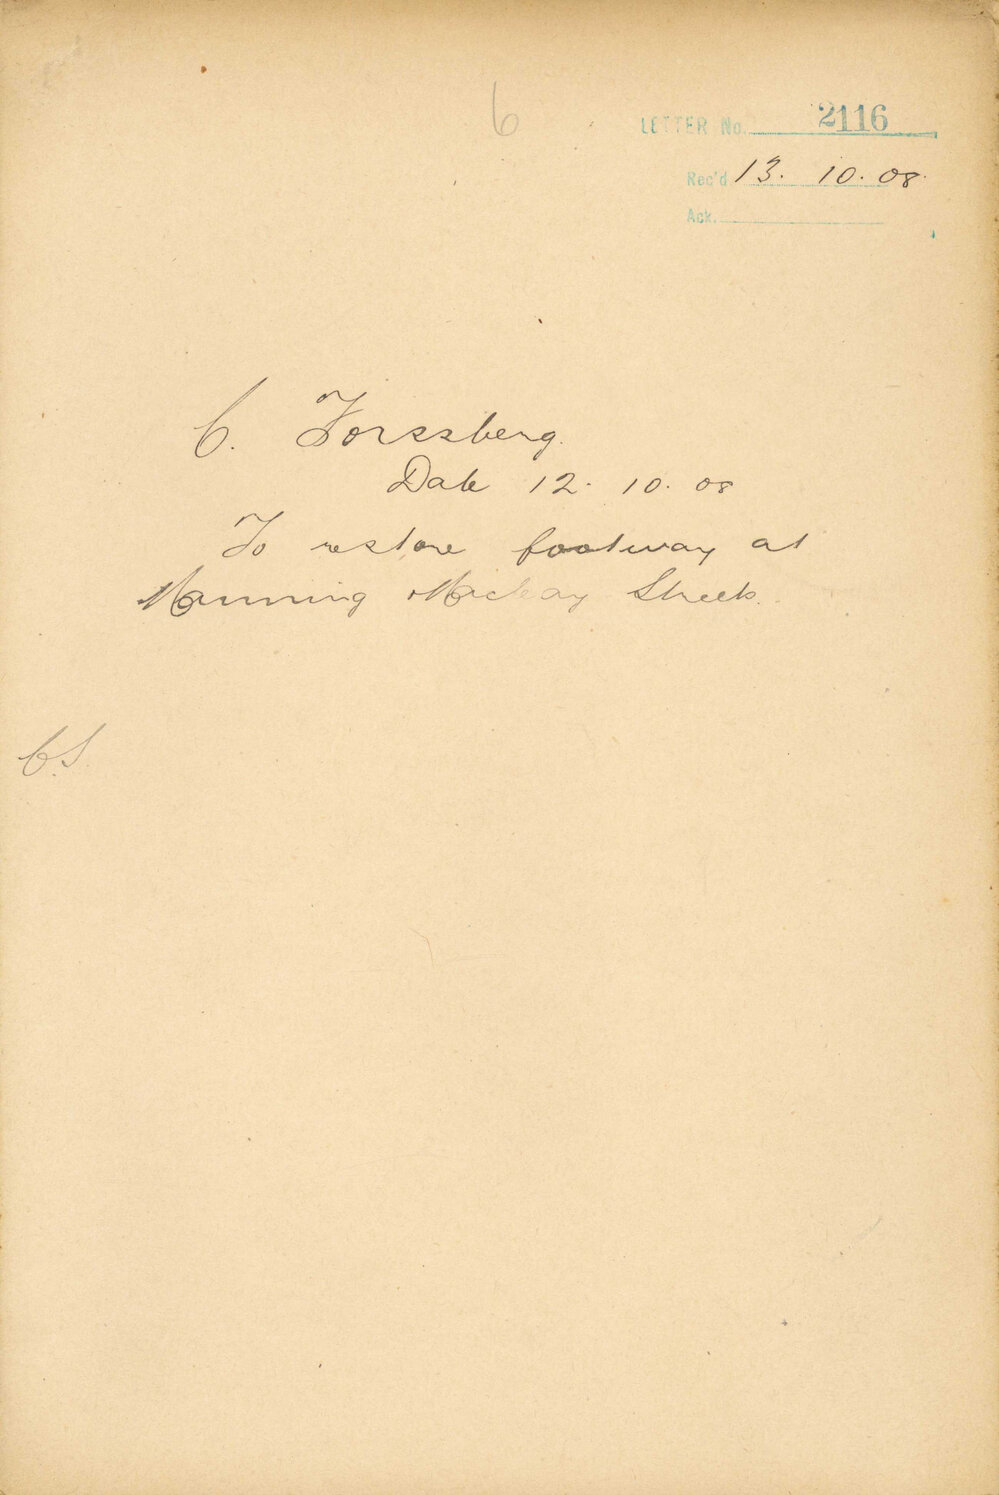 6
LETTER No. 2116
Rec'd 13. 10. 08.
Ack.
C. Forssberg.
Date 12. 10. 08
To restore footway at
Manning Macleay Streets.
C.S.